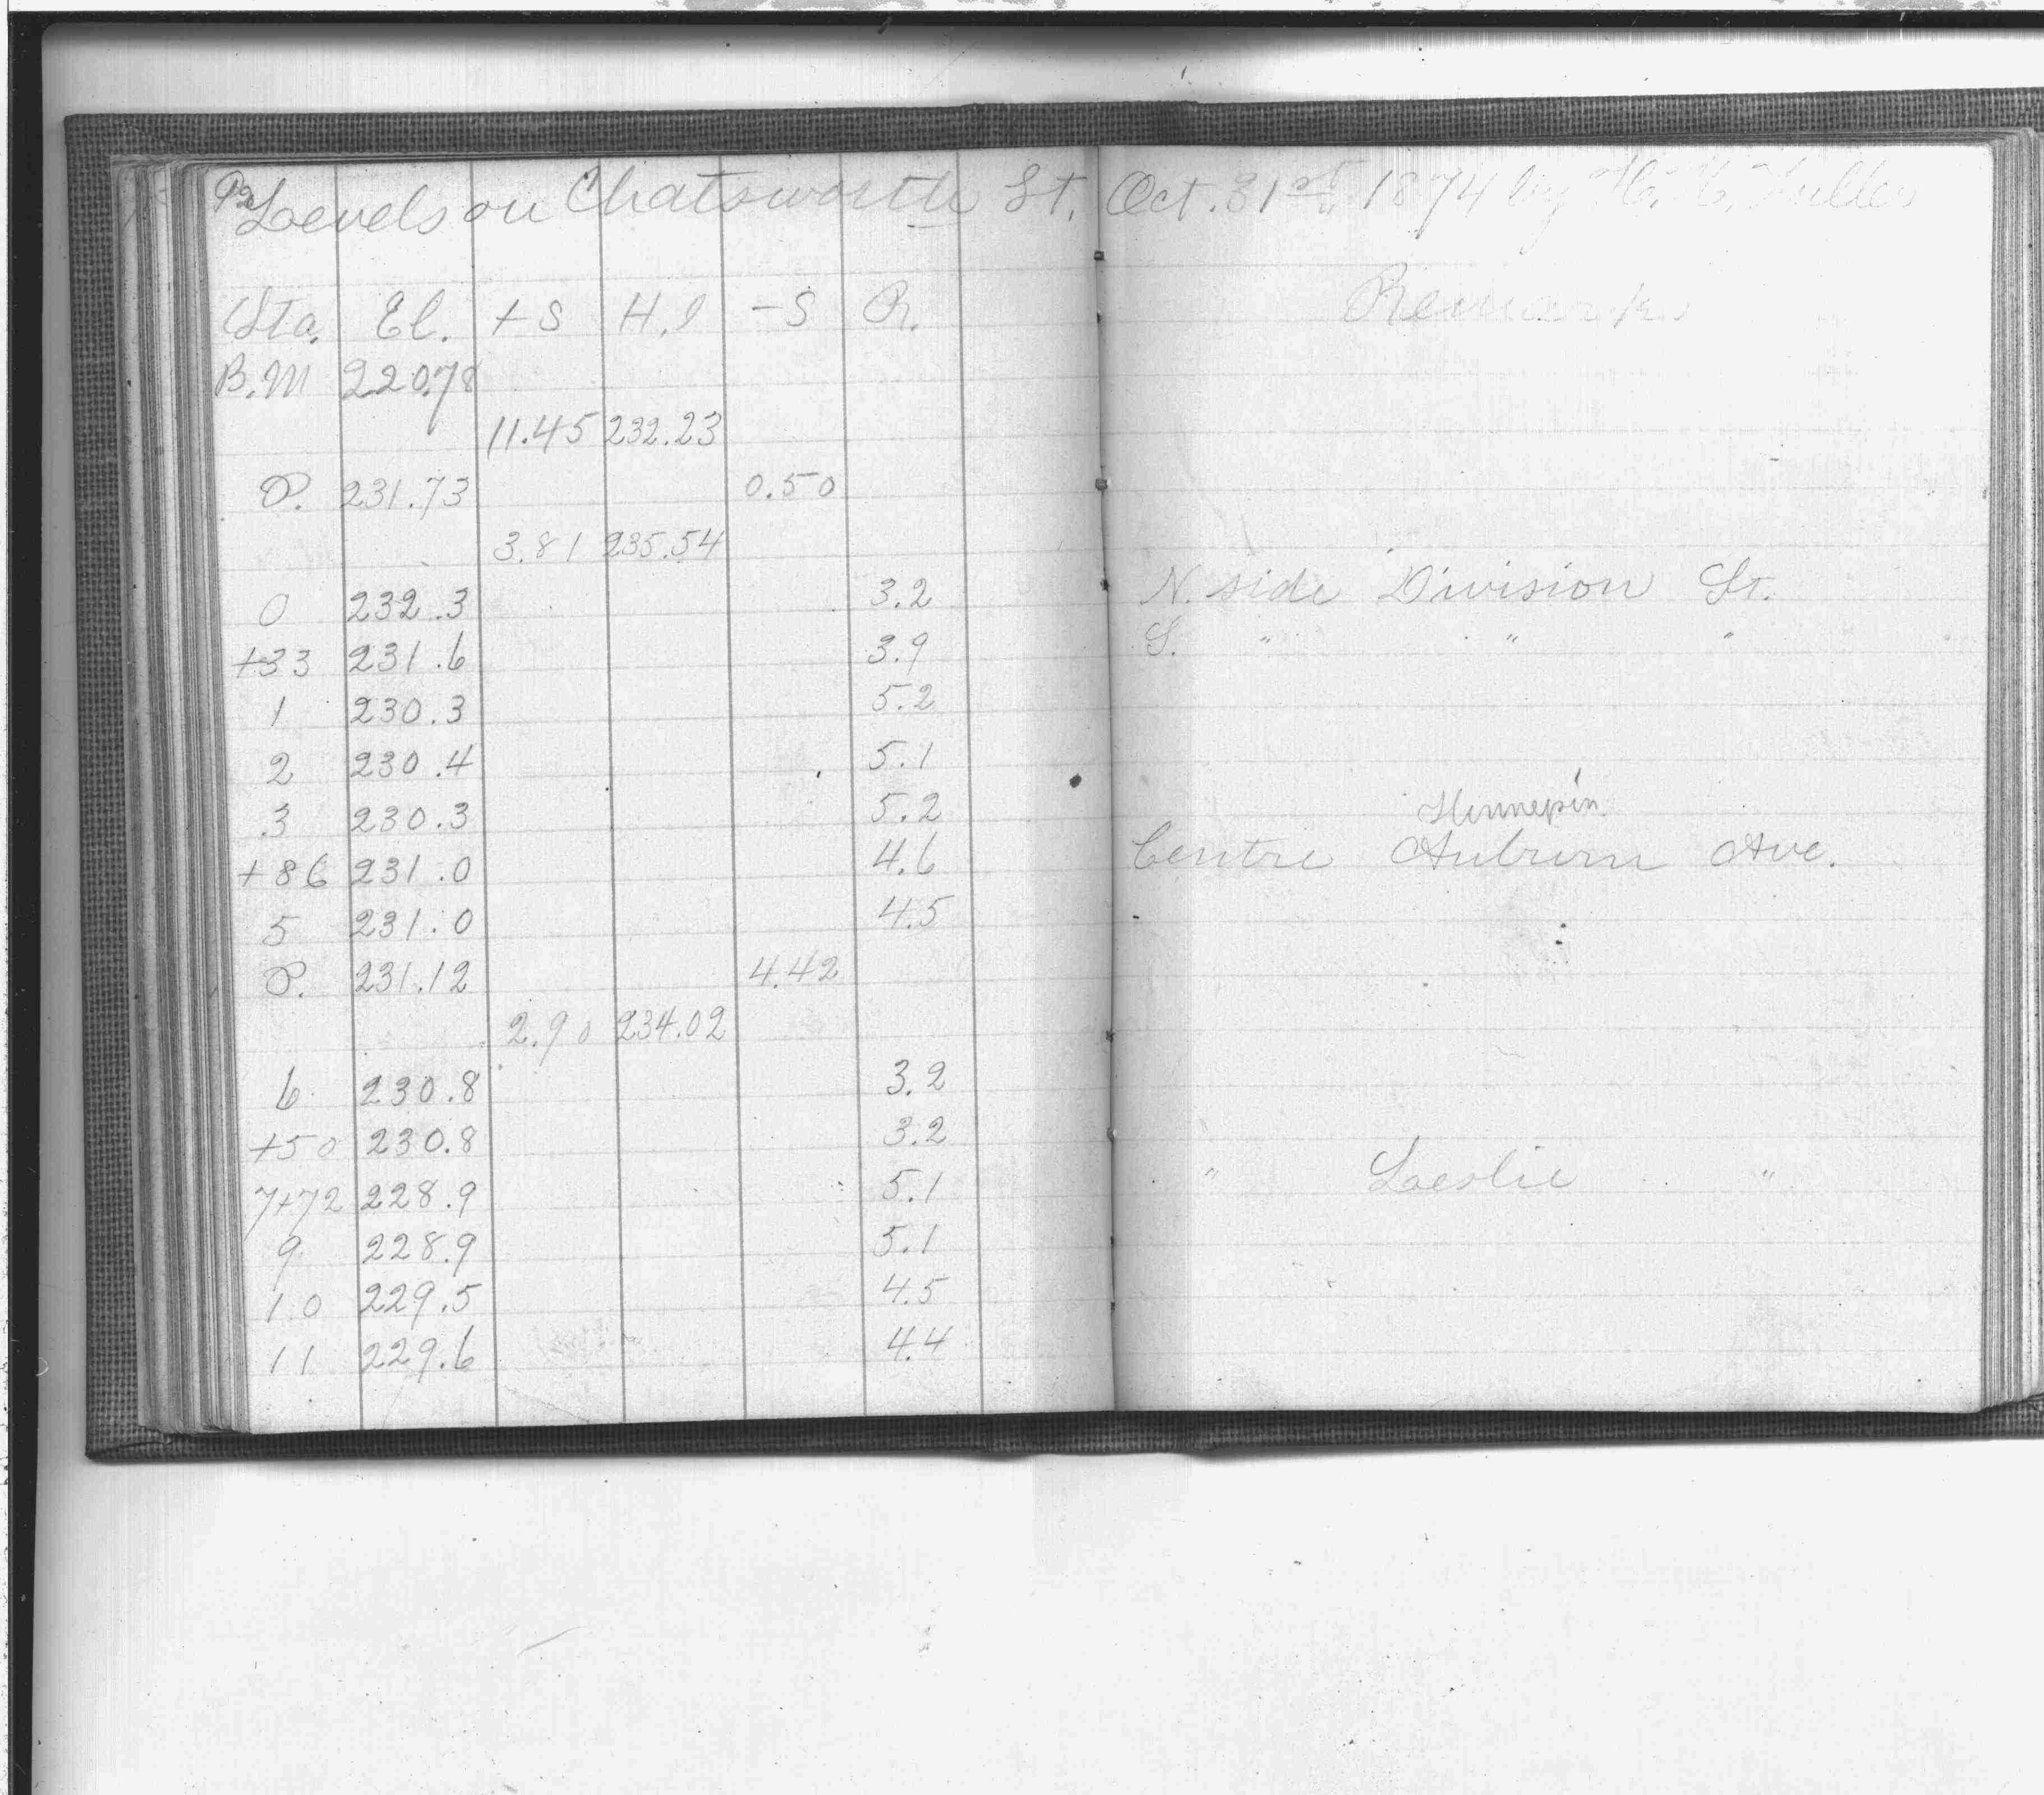 92
Levels on Chatsworth St. Oct. 31st 1874 by H. H. Fuller
Sta. El. +S H.I -S R. Remarks
B.M 220.78
11.45 232.23
P. 231.73 0.50
3.81 235.54
0 232.3 3.2 N. side Division St.
+33 231.6 3.9 S. " " "
1 230.3 5.2
2 230.4 5.1
Hennepin
3 230.3 5.2
+86 231.0 4.6 Centre Auburn Ave.
5 231.0 4.5
P. 231.12 4.42
2.90 234.02
6 230.8 3.2
+50 230.8 3.2
7+72 228.9 5.1 " Leslie "
9 228.9 5.1
10 229.5 4.5
11 229.6 4.4